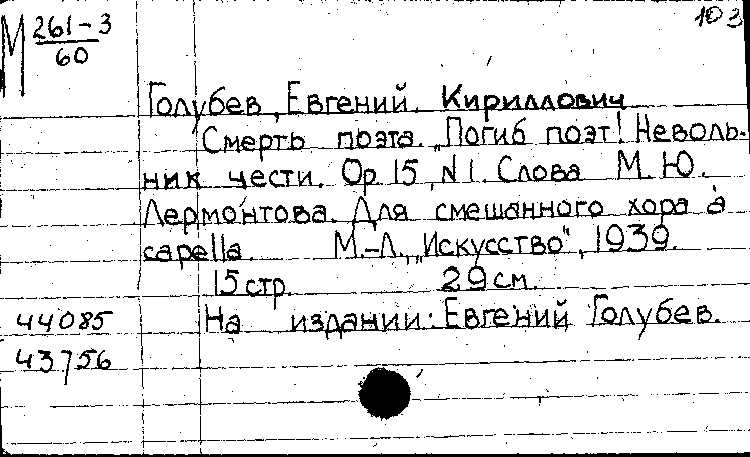 М 261-3
60
103
Голубев, Евгений Кириллович
Смерть поэта. „Погиб поэт! Неволь-
ник чести. Ор 15, N1. Слова М. Ю.
Лермонтова. Для смешанного хора à
capella. М.-Л., „Искусство“, 1939.
15 стр. 29 см.
44085 На издании: Евгений Голубев.
43756